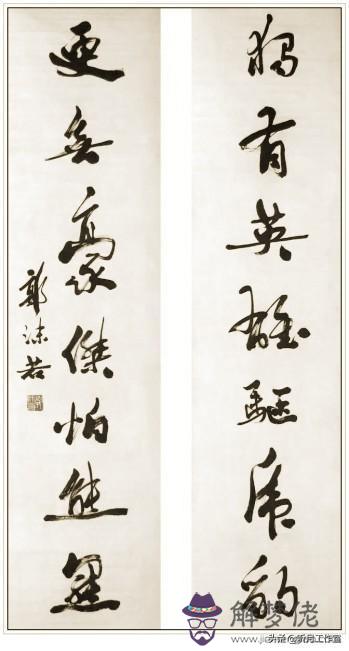 獨有英雄驅虎豹
更無豪傑怕熊羆
郭沫若
解梦佬
头条@新月工作室